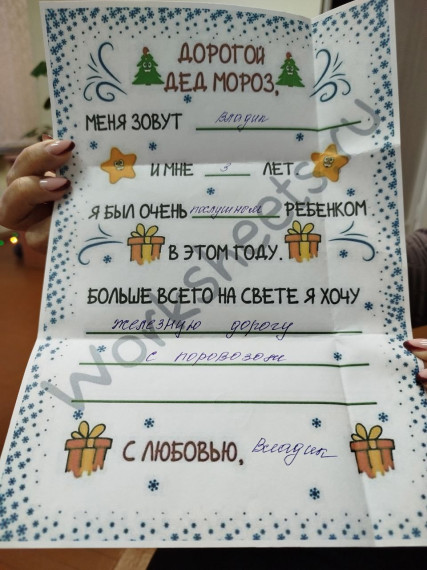 ДОРОГОЙ
ДЕД МОРОЗ,
МЕНЯ ЗОВУТ Владик
И МНЕ 3 ЛЕТ
Я БЫЛ ОЧЕНЬ послушном РЕБЕНКОМ
В ЭТОМ ГОДУ.
БОЛЬШЕ ВСЕГО НА СВЕТЕ Я ХОЧУ
железную дорогу
с поровозом
С ЛЮБОВЬЮ, Владик
Worksheets.ru